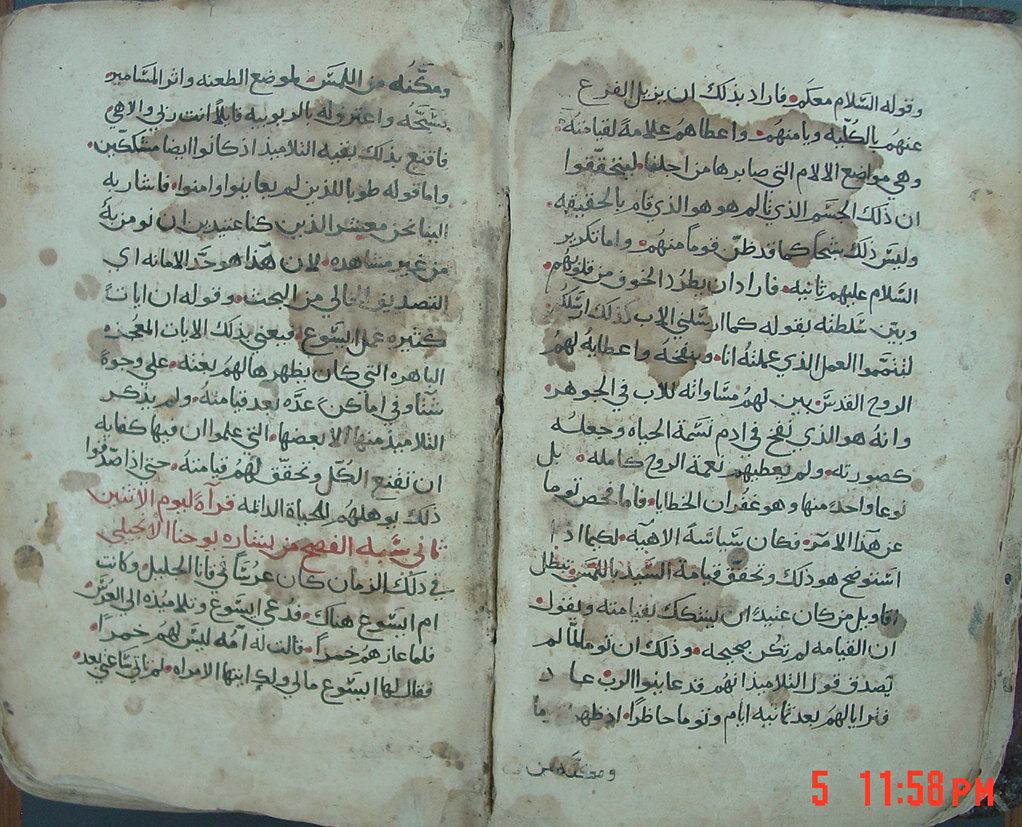 وقوله السَّلام معكم فاراد بذلك ان يزيل الفزع
عنهم بالكليه ويامنهم واعطاهم علامةً لقيامته
وهي مواضع الالام التي صابرها من اجلنا ليتحققوا
ان ذلك الجسَّم الذي تالم هو هو الذي قام بالحقيقه
وليسَّ ذلك شبحاً كما قد ظنّ قوماً منهم واما تكرير
السَّلام عليهم ثانيه فاراد ان يطرد الخوف من قلوبهم
وبين سَّلطته بقوله كما ارسَّلني الاب كذلك ارسَّلكم
لتتمموا العمل الذي عملتهُ انا وبنفخهُ واعطايهُ لهمُ
الروح القدسَّ بين لهمُ مسَّاواته للاب في الجوهر
وانهُ هو الذي نفخ في ادم نسَّمة الحياه وجعلهُ
كصورته ولم يعطيهم نعمة الروح كامله بل
نوعا واحد منها وهو غفران الخطايا فاما فحص توما
عن هذا الامر فكان سَّياسَّة الاهيّه لكيما اذا
اسَّتوضح هو ذلك وتحقق قيامة السَّيد باللمسَّ تبطل
اقاويل من كان عتيداً ان يتشكك بقيامته ويقول
ان القيامه لم تكن صحيحه وذلك ان توما لما لم
يصدق قول التلاميذ انهم قد عاينوا الرب عاد
فترايا لهم بعد ثمانيه ايام وتوما حاظراً اذ ظهر
ومكنه من
ومكّنُه من اللمسَّ لموضع الطعنه واثر المسَّامير
واعترف له بالربوبيه قايلاً انت ربي والاهي
فاقنع بذلك بقيه التلاميذ اذ كانوا ايضا متشككين
واما قوله طوبا للذين لم يعاينوا وامنوا فاشار به
الينا نحن معشر الذين كنا عتيدين ان نومن به
من غير مشاهده لان هذا هو حد الامانه اي
التصديق الخالي من البحث وقوله ان اياتً
كثيره عمل ايسَّوع فيعني بذلك الايات المعجزه
الباهره التي كان يظهرها لهمُ بغته علي وجوهٍ
شتا وفي اماكن عدّه بعد قيامتهُ ولم يذكر
التلاميذ منها الا بعضها التي علموا ان فيها كفايه
ان تقنع الكل وتحقق لهمُ قيامتهُ حتي اذا صدقوا
ذلك يوهلهم للحياة الدائمه قرآةً ليوم الاثنين
ثاني شبه الفصح من بشاره يوحنا الانجيلي
في ذلك الزمان كان عرسَّاً في قانا الجليل وكانت
ام ايسَّوع هناك فدعي ايسَّوع وتلاميذه الي العرسَّ
فلما عازهم خمراً قالت له امه ليسَّ لهم خمراً
فقال لها ايسَّوع مالي ولك ايتها الامراه لم تاتي سَّاعتي بعد
5 11:58 PM